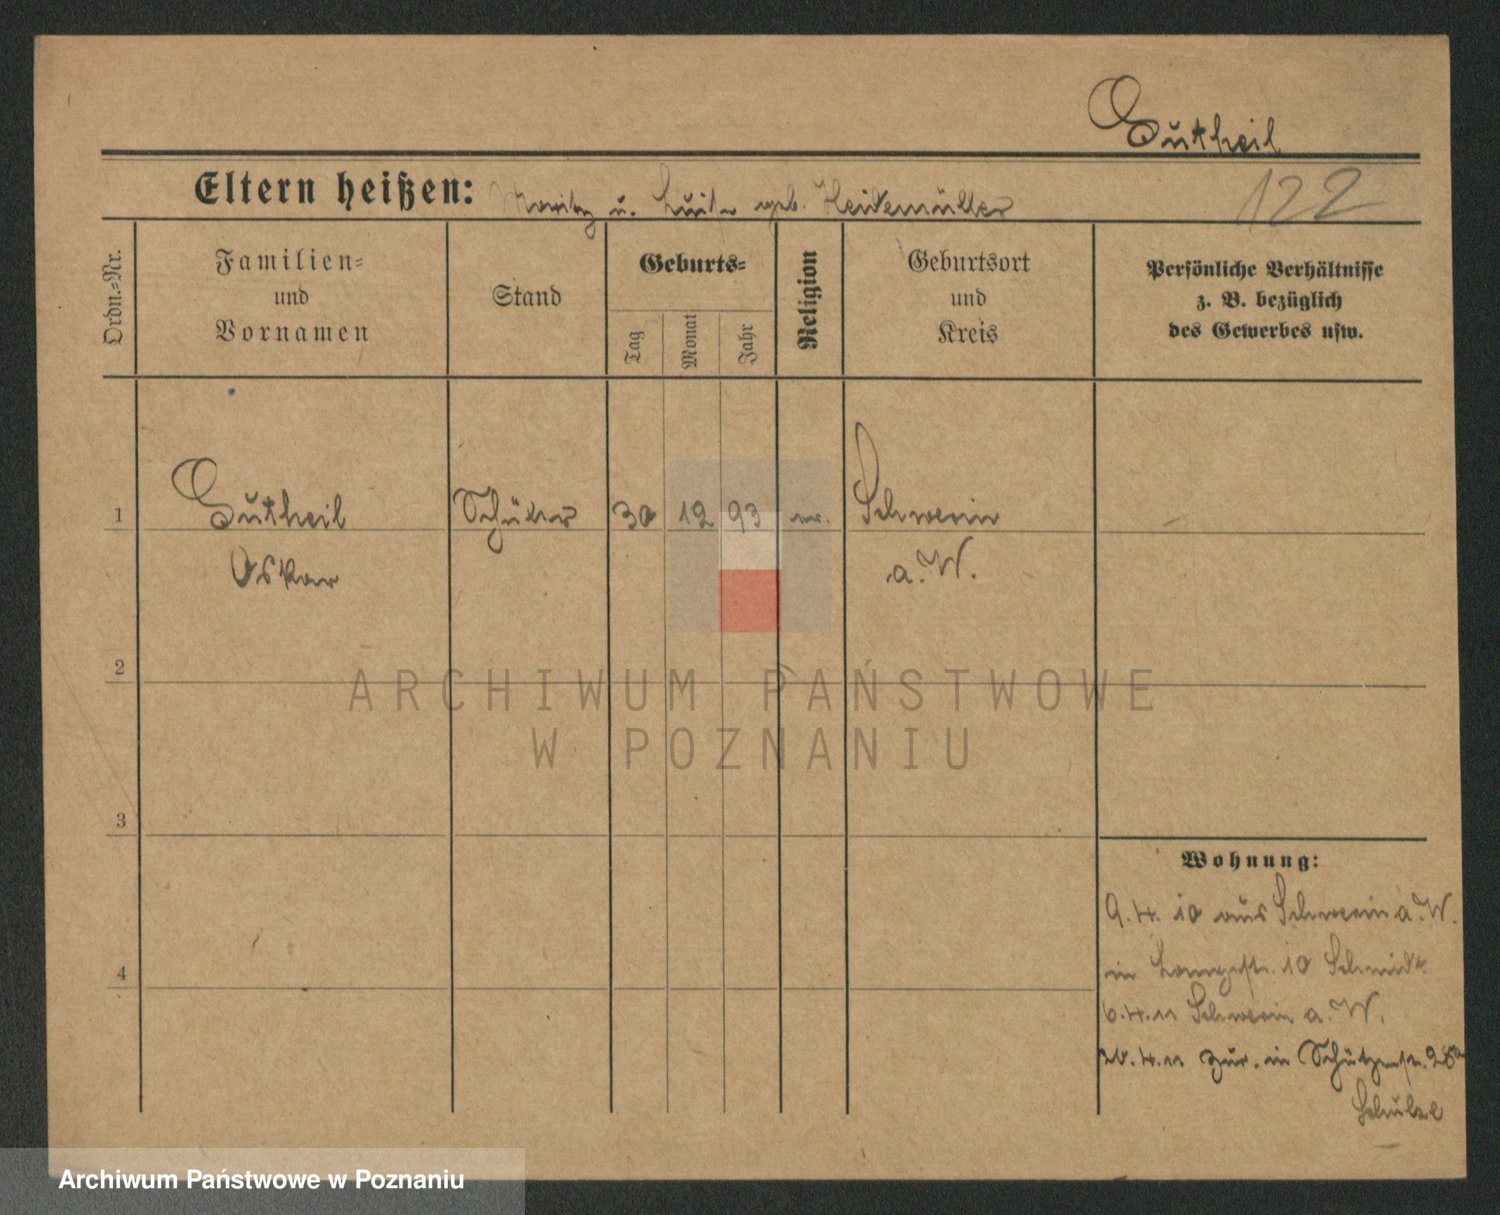 Gutheil
Eltern heißen: Moritz u. Luise geb. Heidemüller
122
Ordn.-Nr.
Familien-
und
Vornamen
Stand
Geburts-
Tag
Monat
Jahr
Religion
Geburtsort
und
Kreis
Persönliche Verhältnisse
z. B. bezüglich
des Gewerbes usw.
1
Gutheil
Schüler
30
12
93
ev.
Schwerin
Oskar
a. W.
2
ARCHIWUM PAŃSTWOWE
W POZNANIU
3
4
Wohnung:
9.4.10 aus Schwerin a. W.
in Langestr. 10 Schmidt
6.4.11 Schwerin a. W.
20.4.11 zur. in Schützenstr. 28a
Archiwum Państwowe w Poznaniu